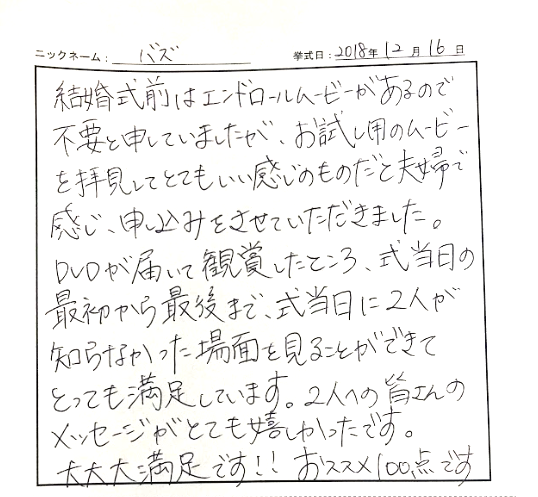 ニックネーム： バズ 挙式日：2018年12月16日
結婚式前はエンドロールムービーがあるので
不要と申していましたが、お試し用のムービー
を拝見してとてもいい感じのものだと夫婦で
感じ、申し込みをさせていただきました。
DVDが届いて観賞したところ、式当日の
最初から最後まで、式当日に2人が
知らなかった場面を見ることができて
とっても満足しています。2人への皆さんの
メッセージがとても嬉しかったです。
大大大満足です!! おススメ100点です